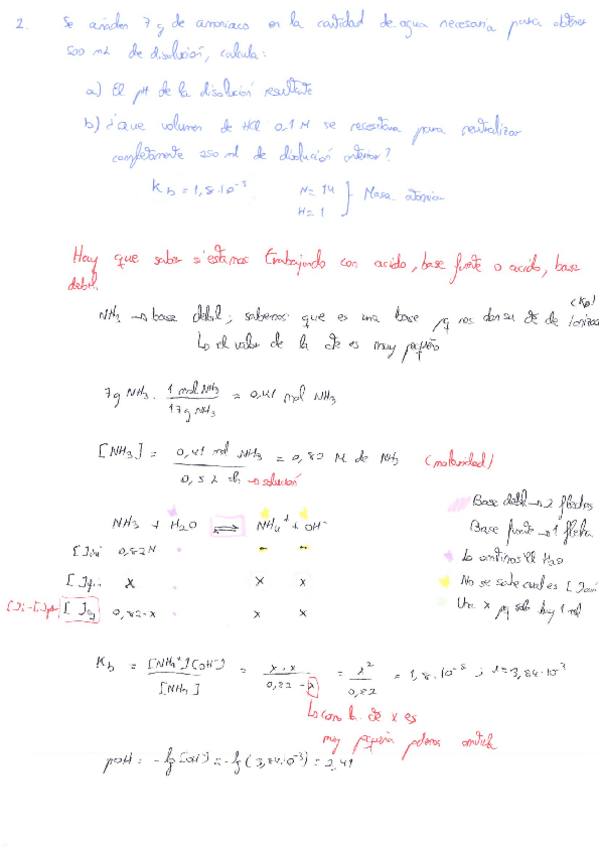 2. Se añaden 7 g de amoniaco en la cantidad de agua necesaria para obtener
500 ml de disolución, calcula:
a) El pH de la disolución resultante
b) ¿que volumen de HCl 0,1 M se necesitara para neutralizar
completamente 250 ml de disolución anterior?
Kb = 1,8·10⁻⁵ N = 14 } Masa atomica
H = 1
Hay que saber si estamos trabajando con acido, base fuerte o acido, base
debil.
NH₃ → base debil; sabemos que es una base pq nos dan su de de ioniza
(Kb)
↳ el valor de la de es muy pequeño
7 g NH₃ · 1 mol NH₃ / 17 g NH₃ = 0,41 mol NH₃
[NH₃] = 0,41 mol NH₃ / 0,5 L = 0,82 M de NH₃ (molaridad)
→ solución
NH₃ + H₂O ⇌ NH₄⁺ + OH⁻
Base debil → 2 flechas
Base fuerte → 1 flecha
[ ]ini 0,82 M - -
Lo omitimos el H₂O
[ ] x x x
No se sabe cual es [ ] ini
[ ]i - [ ] [ ]eq 0,82-x x x
Una x pq solo hay 1 mol
Kb = [NH₄⁺][OH⁻] / [NH₃] = x·x / 0,82-x = x² / 0,82 = 1,8·10⁻⁵ ; x = 3,84·10⁻³
↳ como la de x es
muy pequeña podemos omitirla
pOH = -lg [OH⁻] = -lg (3,84·10⁻³) = 2,41